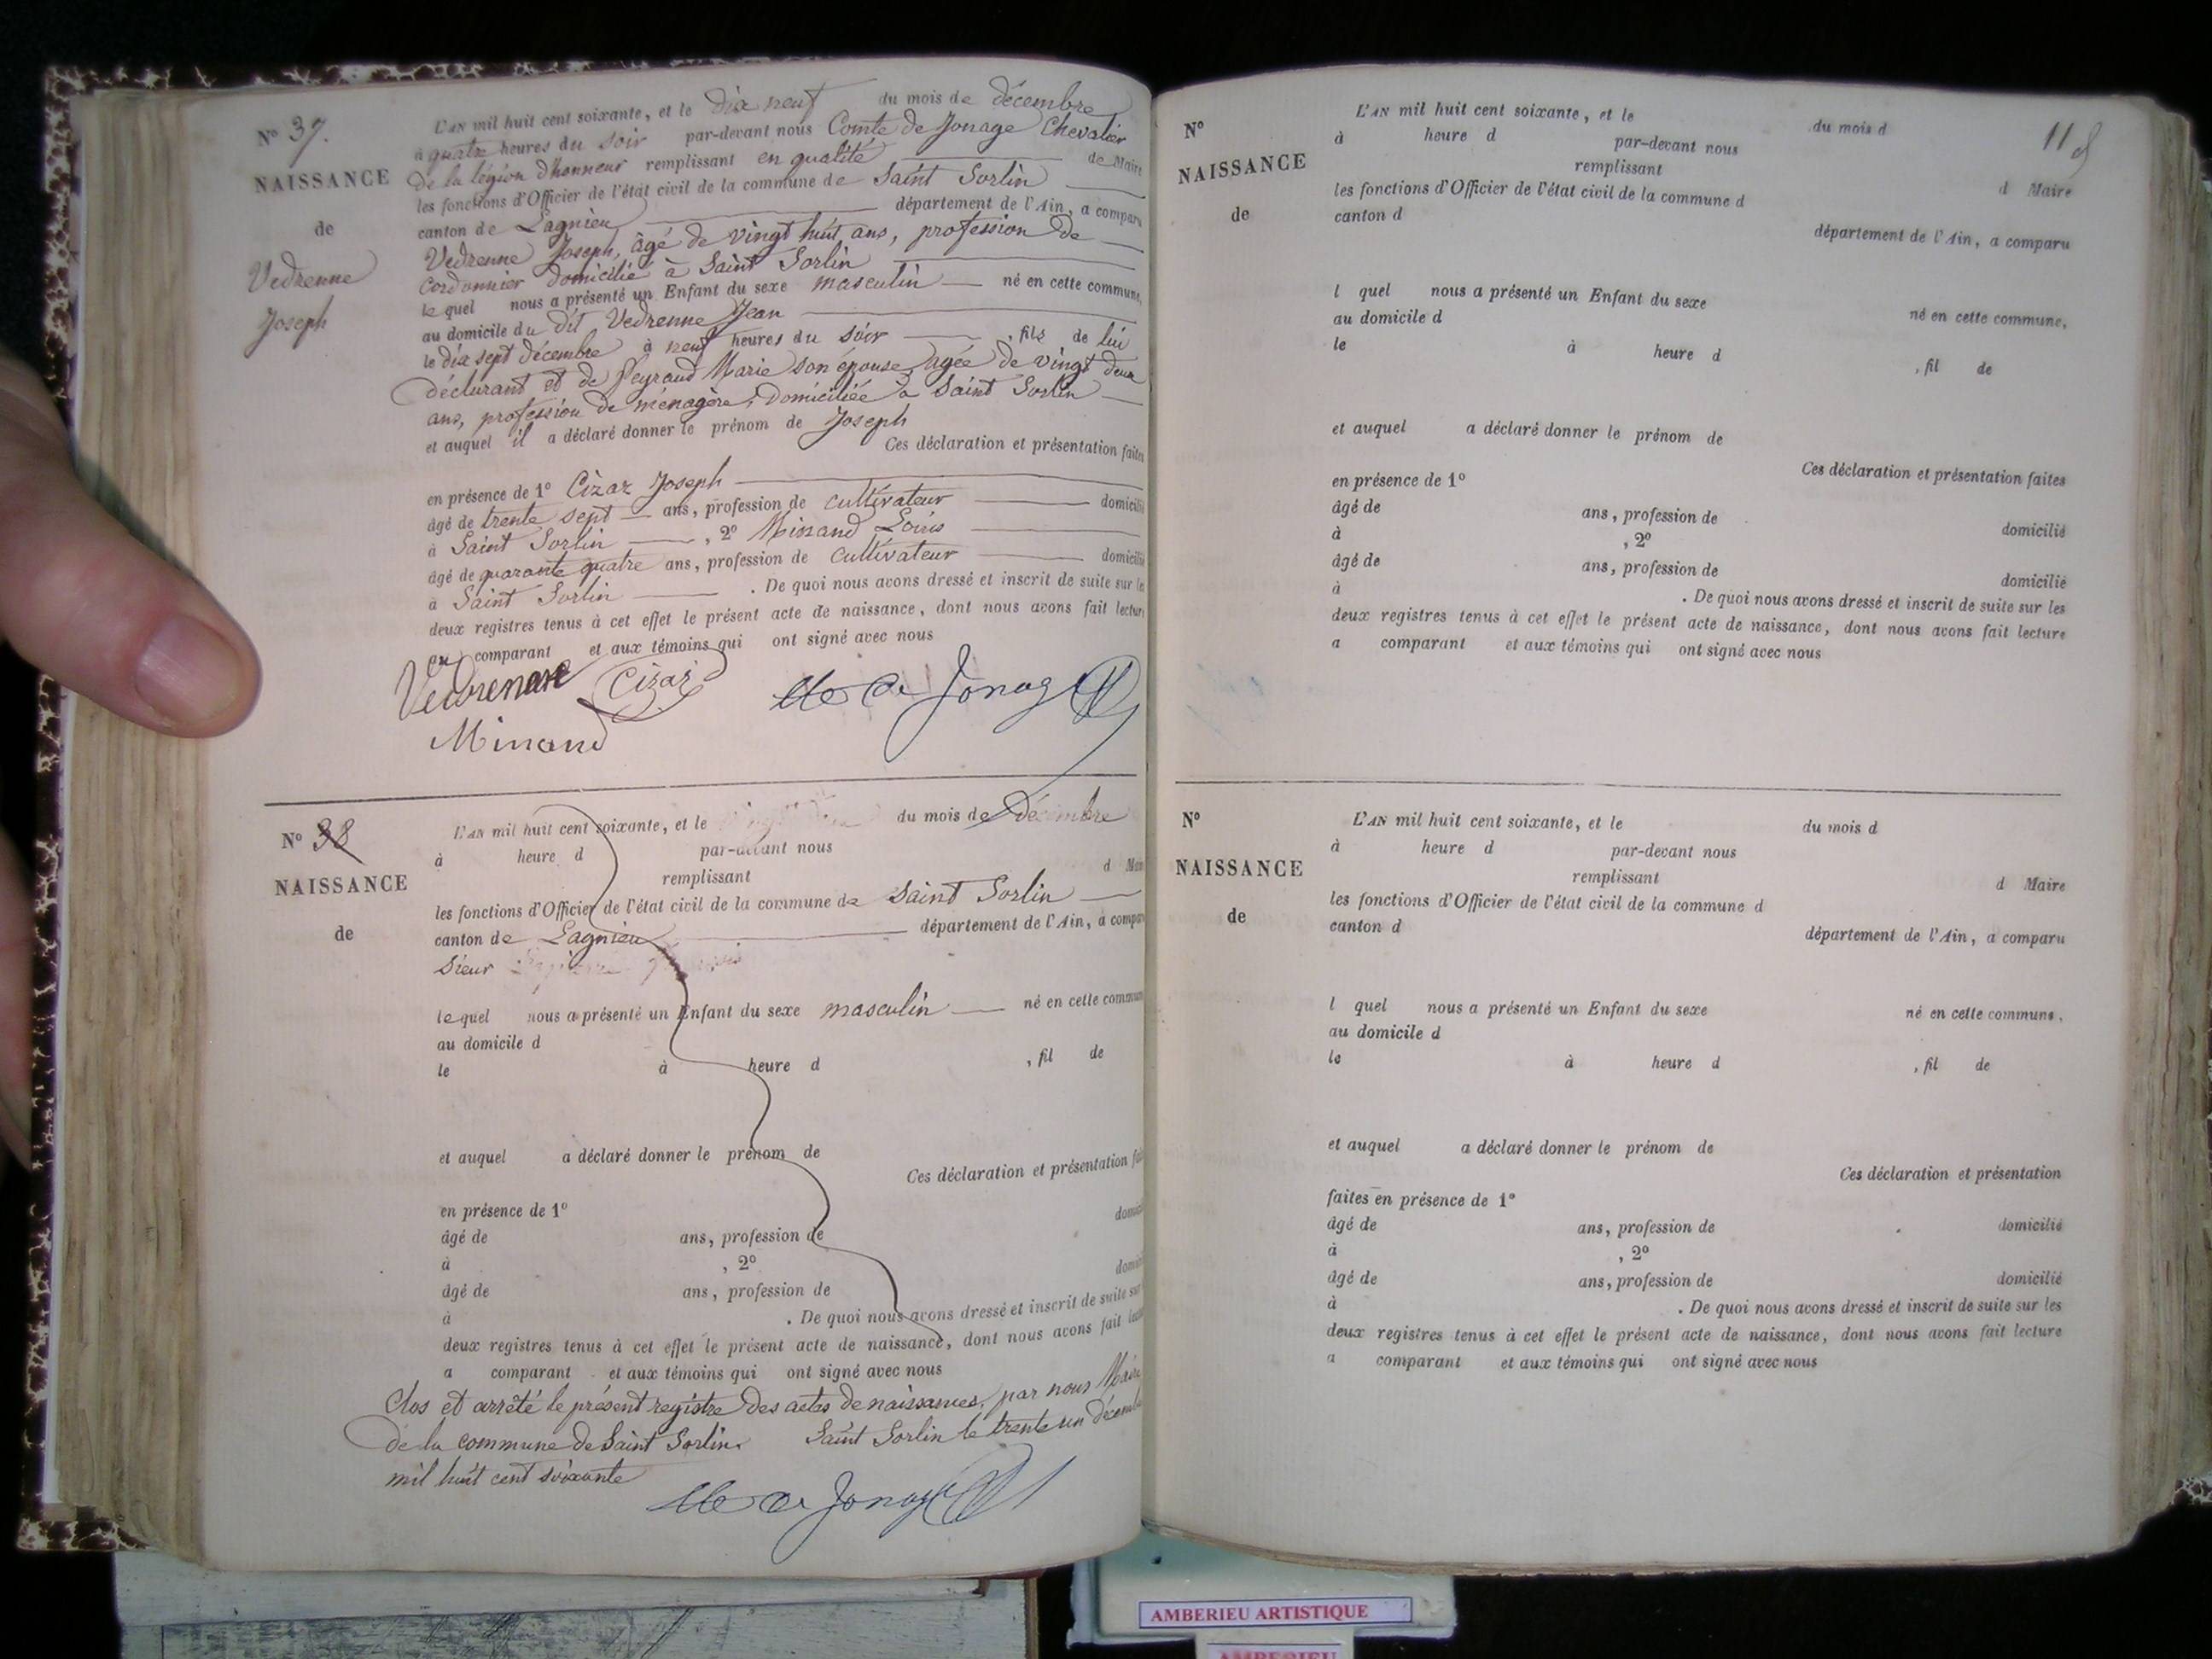 N° 37.
NAISSANCE
de
Vedrenne
Joseph
L'AN mil huit cent soixante, et le dix neuf du mois de décembre
à quatre heures du soir par-devant nous Comte de Jonage Chevalier
de la légion d'honneur remplissant en qualité de Maire
les fonctions d'Officier de l'état civil de la commune de Saint Sorlin
canton de Lagnieu département de l'Ain, a comparu
Vedrenne Joseph, âgé de vingt huit ans, profession de
cordonnier domicilié à Saint Sorlin
lequel nous a présenté un Enfant du sexe masculin né en cette commune,
au domicile du dit Vedrenne Jean
le dix sept décembre à neuf heures du soir, fils de lui
déclarant et de Peyraud Marie son épouse agée de vingt deux
ans, profession de ménagère, domiciliée à Saint Sorlin
et auquel il a déclaré donner le prénom de Joseph
Ces déclaration et présentation faites
en présence de 1° Cizar Joseph
âgé de trente sept ans, profession de cultivateur domicilié
à Saint Sorlin, 2° Minand Louis
âgé de quarante quatre ans, profession de cultivateur domicilié
à Saint Sorlin. De quoi nous avons dressé et inscrit de suite sur les
deux registres tenus à cet effet le présent acte de naissance, dont nous avons fait lecture
au comparant et aux témoins qui ont signé avec nous
Vedrenne Cizar Cte de Jonage
Minand
N° 38
NAISSANCE
de
L'AN mil huit cent soixante, et le du mois de décembre
à heure d par-devant nous
remplissant d Maire
les fonctions d'Officier de l'état civil de la commune de Saint Sorlin
canton de Lagnieu département de l'Ain, a comparu
Sieur
lequel nous a présenté un Enfant du sexe masculin né en cette commune
au domicile d
le à heure d , fil de
et auquel a déclaré donner le prénom de
Ces déclaration et présentation fai
en présence de 1°
âgé de ans, profession de domici
à , 2°
âgé de ans, profession de domici
à . De quoi nous avons dressé et inscrit de suite sur
deux registres tenus à cet effet le présent acte de naissance, dont nous avons fait lecture
a comparant et aux témoins qui ont signé avec nous
Clos et arrêté le présent registre des actes de naissances, par nous Maire
de la commune de Saint Sorlin. Saint Sorlin le trente un décembre
mil huit cent soixante
Cte de Jonage
118
N°
NAISSANCE
de
L'AN mil huit cent soixante, et le du mois d
à heure d par-devant nous
remplissant d Maire
les fonctions d'Officier de l'état civil de la commune d
canton d département de l'Ain, a comparu
l quel nous a présenté un Enfant du sexe né en cette commune,
au domicile d
le à heure d , fil de
et auquel a déclaré donner le prénom de
Ces déclaration et présentation faites
en présence de 1°
âgé de ans, profession de domicilié
à , 2°
âgé de ans, profession de domicilié
à . De quoi nous avons dressé et inscrit de suite sur les
deux registres tenus à cet effet le présent acte de naissance, dont nous avons fait lecture
a comparant et aux témoins qui ont signé avec nous
N°
NAISSANCE
de
L'AN mil huit cent soixante, et le du mois d
à heure d par-devant nous
remplissant d Maire
les fonctions d'Officier de l'état civil de la commune d
canton d département de l'Ain, a comparu
l quel nous a présenté un Enfant du sexe né en cette commune.
au domicile d
le à heure d , fil de
et auquel a déclaré donner le prénom de
Ces déclaration et présentation
faites en présence de 1°
âgé de ans, profession de domicilié
à , 2°
âgé de ans, profession de domicilié
à . De quoi nous avons dressé et inscrit de suite sur les
deux registres tenus à cet effet le présent acte de naissance, dont nous avons fait lecture
a comparant et aux témoins qui ont signé avec nous
AMBERIEU ARTISTIQUE
AMBERIEU